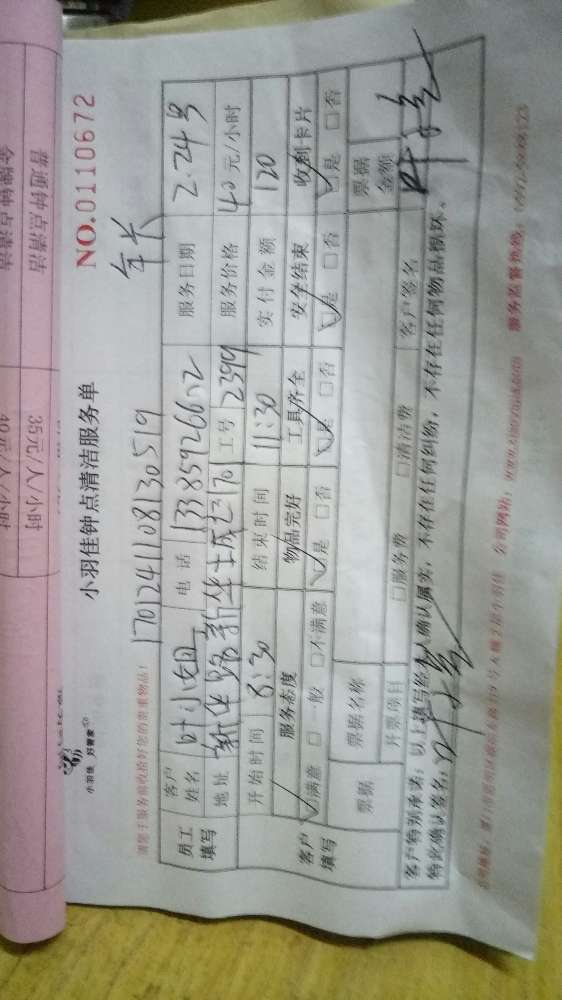 普通钟点清洁 35元/人/小时
金牌钟点清洁 40元/人/小时
小羽佳 好管家
小羽佳钟点清洁服务单
NO.0110672
年长
1701241108130519
员工填写
客户姓名 叶小姐 电话 13385926622 服务日期 2.24号
地址 工号 2399 服务价格 40元/小时
开始时间 8:30 结束时间 11:30 实付金额 120
客户填写
服务态度 物品完好 工具齐全 安全结束 收到卡片
☑满意 □一般 □不满意 ☑是 □否 ☑是 □否 ☑是 □否 ☑是 □否
票据 票据名称 票据金额
开票项目 □服务费 □清洁费 客户签名
客户特别承诺：以上填写经本人确认属实，不存在任何纠纷，不存在任何物品损坏。
特此确认签名：